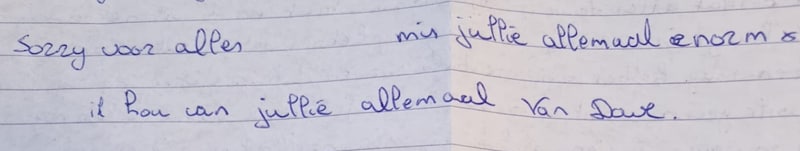 Sorry voor alles mis jullie allemaal enorm x
ik hou van jullie allemaal Van Dave.